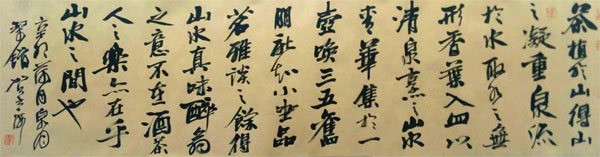 茶植於山得山
之凝重泉源
於水取水之無
形香葉入皿以
清泉烹之山水
菁華集於一
壺喚三五舊
朋知小坐品
茗雅談之餘得
山水真味醉翁
之意不在酒茶
人之樂亦在乎
山水之間也
辛卯荷月